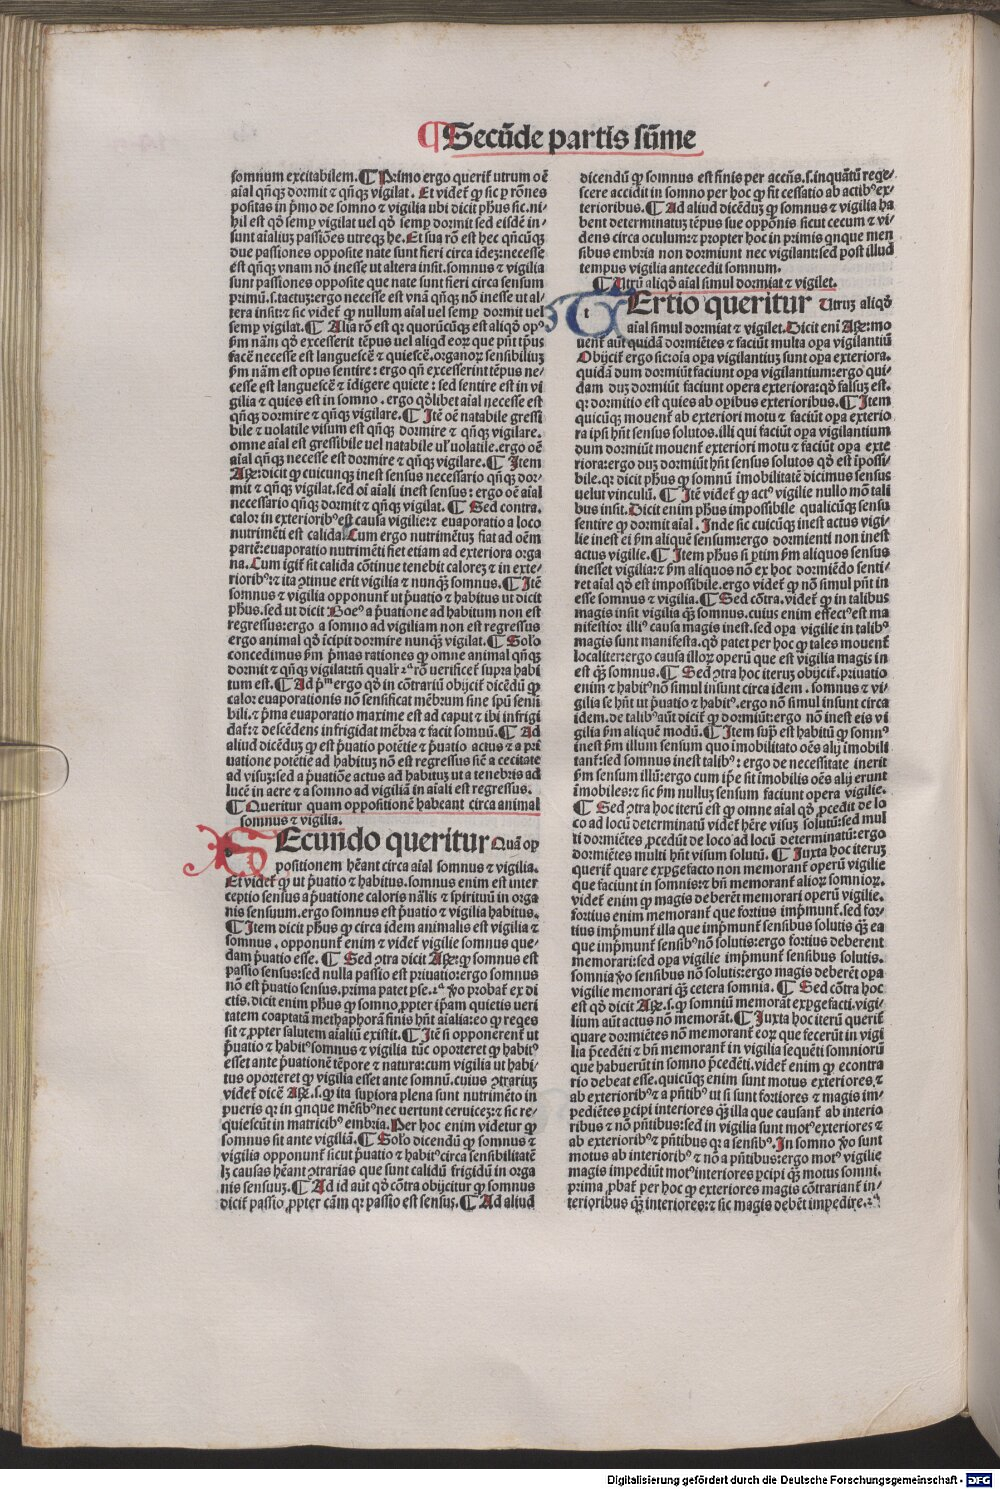 ¶Secūde partis sūme
somnum excitabilem. ¶ Primo ergo querit᷑ utrum oē
aīal qn̄qꝫ dormit ⁊ qn̄qꝫ vigilat. Et videt᷑ ꝙ sic ꝑ rōnes
positas in p̄mo de somno ⁊ vigilia ubi dicit ph̄us sic. ni⸗
hil est qd̄ semꝑ vigilat uel qd̄ semꝑ dormit sed eisdē in⸗
sunt aīaliuꝫ passiōes utreqꝫ he. Et sua rō est hec qn̄cūqꝫ
due passiones opposite nate sunt fieri circa ideꝫ: necesse
est qn̄qꝫ vnam nō inesse ut altera insit. somnus ⁊ vigilia
sunt passiones opposite que nate sunt fieri circa sensum
primū. s. tactuꝫ: ergo necesse est vnā qn̄qꝫ nō inesse ut al⸗
tera insit: ⁊ sic videt᷑ ꝙ nullum aīal uel semꝑ dormit uel
semꝑ vigilat. ¶ Alia rō est qꝛ quorūcūqꝫ est aliqd̄ opꝰ
ẜm nām qd̄ excesserit tēpus uel aliqd̄ eoꝝ que pn̄t ip̄us
facē necesse est languescē ⁊ quiescē. organoꝝ sensibiliuꝫ
ẜm nām est opus sentire: ergo qn̄ excesserint tēpus ne⸗
cesse est languescē ⁊ idigere quiete: sed sentire est in vi
gilia ⁊ quies est in somno. ergo qd̄libet aīal necesse est
qn̄qꝫ dormire ⁊ qn̄qꝫ vigilare. ¶ Itē oē natabile gressi
bile ⁊ uolatile visum est qn̄qꝫ dormire ⁊ qn̄qꝫ vigilare.
omne aīal est gressibile uel natabile ul᷑ uolatile. ergo oē
aīal qn̄qꝫ necesse est dormire ⁊ qn̄qꝫ vigilare. ¶ Item
Aꝝ: dicit ꝙ cuicunqꝫ inest sensus necessario qn̄qꝫ dor⸗
mit ⁊ qn̄qꝫ vigilat. sed oī aīali inest sensus: ergo oē aīal
necessario qn̄qꝫ dormit ⁊ qn̄qꝫ vigilat. ¶ Sed contra.
calor in exteriorib᷒ est causa vigilie: ⁊ euaporatio a loco
nutrimēti est calida. Cum ergo nutrimētuꝫ fiat ad oēm
partē: euaporatio nutrimēti fiet etiam ad exteriora orga
na. Cum igit᷑ sit calida cōtinue tenebit caloreꝫ ⁊ in exte⸗
riorib᷒: ⁊ ita ꝯtinue erit vigilia ⁊ nunqꝫ̄ somnus. ¶ Itē
somnus ⁊ vigilia opponunt᷑ ut p̄uatio ⁊ habitus ut dicit
ph̄us. sed ut dicit Boeꝰ a p̄uatione ad habitum non est
regressus: ergo a somno ad vigiliam non est regressus
ergo animal qd̄ īcipit dormire nunqꝫ̄ vigilat. ¶ Solo
concedimus ẜm p̄mas rationes ꝙ omne animal qn̄qꝫ
dormit ⁊ qn̄qꝫ vigilat: tn̄ qualr̄ .2ᵃ rō verificet᷑ supra habi
tum est. ¶ Ad p̄ᵐ ergo qd̄ in cōtrariū obijcit᷑ dicēdū ꝙ
calor euaporationis nō sensificat mēbrum sine spū sensi
bili. ⁊ p̄ma euaporatio maxime est ad caput ⁊ ibi infrigi
dat᷑: ⁊ descēdens infrigidat mēbra ⁊ facit somnū. ¶ Ad
aliud dicēduꝫ ꝙ est p̄uatio potētie ⁊ p̄uatio actus ⁊ a pri
uatione potētie ad habituꝫ nō est regressus sic̄ a cecitate
ad visuꝫ: sed a p̄uatiōe actus ad habituꝫ ut a tenebris ad
lucē in aere ⁊ a somno ad vigiliā in aīali est regressus.
¶ Queritur quam oppositionē habeant circa animal
somnus ⁊ vigilia.
SEcundo queritur Quā op
positionem hēant circa aīal somnus ⁊ vigilia.
Et videt᷑ ꝙ ut p̄uatio ⁊ habitus. somnus enim est inter
ceptio sensus a p̄uatione caloris nāl̄is ⁊ spirituū in orga
nis sensuum. ergo somnus est p̄uatio ⁊ vigilia habitus.
¶ Item dicit ph̄us ꝙ circa idem animalis est vigilia ⁊
somnus. opponunt᷑ enim ⁊ videt᷑ vigilie somnus que⸗
dam p̄uatio esse. ¶ Sed ꝯtra dicit Aꝝ: ꝙ somnus est
passio sensus: sed nulla passio est priuatio: ergo somnus
nō est p̄uatio sensus. prima patet ꝑ se. 2ᵃ ꝟo probat᷑ ex di
ctis. dicit enim ph̄us ꝙ somno ꝓpter ip̄am quietis ueri
tatem coaptatā methaphorā finis hn̄t aīalia: eo ꝙ reqes
sit ⁊ ꝓpter salutem aīaliū existit. ¶ Itē si opponerent᷑ ut
p̄uatio ⁊ habitꝰ somnus ⁊ vigilia tūc oporteret ꝙ habitꝰ
esset ante p̄uationē tēpore ⁊ natura: cum vigilia ut habi⸗
tus oporteret ꝙ vigilia esset ante somnū. cuius ꝯtrariuꝫ
videt᷑ dicē Aꝝ. s. ꝙ ita supiora plena sunt nutrimēto in
pueris qꝛ in qnque mēsib᷒ nec uertunt ceruiceꝫ: ⁊ sic re⸗
quiescūt in matricib᷒ embria. Per hoc enim videtur ꝙ
somnus sit ante vigiliā. ¶ Solo dicendū ꝙ somnus ⁊
vigilia opponunt᷑ sicut p̄uatio ⁊ habitꝰ circa sensibilitatē
lꝫ causas hēant ꝯtrarias que sunt calidū frigidū in orga
nis sensuuꝫ. ¶ Ad id aūt qd̄ cōtra obijcitur ꝙ somnus
dicit᷑ passio ꝓpter cām qꝛ passio est sensuꝫ. ¶ Ad aliud
dicendū ꝙ somnus est finis per accn̄s. s. inquātū reqe⸗
scere accidit in somno per hoc ꝙ fit cessatio ab actib᷒ ex⸗
terioribus. ¶ Ad aliud dicēduꝫ ꝙ somnus ⁊ vigilia ha
bent determinatuꝫ tēpus sue oppōnis sicut cecum ⁊ vi⸗
dens circa oculum: ⁊ propter hoc in primis qnque men
sibus embria non dormiunt nec vigilant: sed post illud
tempus vigilia antecedit somnum.
¶ Utrū aliqd̄ aīal simul dormiat ⁊ vigilet.
TErtio queritur Utruꝫ aliqd̄
aīal simul dormiat ⁊ vigilet. Dicit eni Aꝝ: mo
uent᷑ aūt quidā dormiētes ⁊ faciūt multa oꝑa vigilantiū
Obijcit᷑ ergo sic: oīa oꝑa vigilantiuꝫ sunt oꝑa exteriora.
quidā dum dormiūt faciunt oꝑa vigilantium: ergo qui⸗
dam duꝫ dormiūt faciunt opera exteriora: qd̄ falsuꝫ est.
qꝛ dormitio est quies ab oꝑibus exterioribus. ¶ Item
quicūqꝫ mouent᷑ ab exteriori motu ⁊ faciūt oꝑa exterio
ra ipsi hn̄t sensus solutos. illi qui faciūt oꝑa vigilantium
dum dormiūt mouent᷑ exteriori motu ⁊ faciūt oꝑa exte
riora: ergo duꝫ dormiūt hn̄t sensus solutos qd̄ est īpossi⸗
bile. qꝛ dicit ph̄us ꝙ somnū imobilitatē dicimus sensus
uelut vinculū. ¶ Itē videt᷑ ꝙ actꝰ vigilie nullo mō tali
bus insit. Dicit enim ph̄us impossibile qualicūqꝫ sensu
sentire ꝙ dormit aīal. Inde sic cuicūqꝫ inest actus vigi⸗
lie inest ei ẜm aliquē sensum: ergo dormienti non inest
actus vigilie. ¶ Item ph̄us si ꝑtim ẜm aliquos sensus
inesset vigilia: ⁊ ẜm aliquos nō ex hoc dormiēdo senti⸗
ret aīal qd̄ est impossibile. ergo videt᷑ ꝙ nō simul pn̄t in
esse somnus ⁊ vigilia. ¶ Sed cōtra. videt᷑ ꝙ in talibus
magis insit vigilia qꝫ̄ somnus. cuius enim effectꝰ est ma
nifestior illiꝰ causa magis inest. sed oꝑa vigilie in talib᷒
magis sunt manifesta. qd̄ patet per hoc ꝙ tales mouent᷑
localiter: ergo causa illoꝝ operū que est vigilia magis in
est qꝫ̄ somnus. ¶ Sed ꝯtra hoc iteruꝫ obijcit᷑. priuatio
enim ⁊ habitꝰ nō simul insunt circa idem. somnus ⁊ vi⸗
gilia se hn̄t ut p̄uatio ⁊ habitꝰ. ergo nō simul insunt circa
idem. de talib᷒ aūt dicit᷑ ꝙ dormiūt: ergo nō inest eis vi
gilia ẜm aliquē modū. ¶ Item supꝰ est habitū ꝙ somnꝰ
inest ẜm illum sensum quo imobilitato oēs alij īmobili
tant᷑: sed somnus inest talib᷒: ergo de necessitate inerit
ẜm sensum illū: ergo cum ip̄e sit imobilis oēs alij erunt
īmobiles: ⁊ sic ẜm nulluꝫ sensum faciunt opera vigilie.
¶ Sed ꝯtra hoc iterū est ꝙ omne aīal qd̄ ꝓcedit de lo
co ad locū determinatū videt᷑ hēre visuꝫ solutū: sed mul
ti dormiētes ꝓcedūt de loco ad locū determinatū: ergo
dormiētes multi hn̄t visum solutū. ¶ Juxta hoc iteruꝫ
querit᷑ quare exꝑgefacto non memorant᷑ operū vigilie
que faciunt in somnis: ⁊ bn̄ memorant᷑ alioꝝ somnioꝝ.
videt᷑ enim ꝙ magis deberēt memorari operū vigilie.
fortius enim memorant᷑ que fortius imp̄munt᷑. sed for⸗
tius imp̄munt᷑ illa que imp̄munt᷑ sensibus solutis qꝫ̄ ea
que imp̄munt᷑ sensib᷒ nō solutis: ergo fortius deberent
memorari: sed oꝑa vigilie imp̄munt᷑ sensibus solutis.
somnia ꝟo sensibus nō solutis: ergo magis deberēt oꝑa
vigilie memorari qꝫ̄ cetera somnia. ¶ Sed cōtra hoc
est qd̄ dicit Aꝝ. s. ꝙ somniū memorāt exꝑgefacti. vigi⸗
lium aūt actus nō memorāt. ¶ Juxta hoc iterū querit᷑
quare dormiētes nō memorant᷑ eoꝝ que fecerūt in vigi
lia p̄cedēti ⁊ bn̄ memorant᷑ in vigilia sequēti somniorū
que habuerūt in somno p̄cedēti. videt᷑ enim ꝙ econtra
rio debeat esse. quicūqꝫ enim sunt motus exteriores ⁊
ab exteriorib᷒ ⁊ a pn̄tib᷒ ut si sunt fortiores ⁊ magis im⸗
pediētes ꝑcipi interiores qꝫ̄ illa que causant᷑ ab interio
ribus ⁊ nō pn̄tibus: sed in vigilia sunt motꝰ exteriores ⁊
ab exteriorib᷒ ⁊ pn̄tibus qꝛ a sensib᷒. In somno ꝟo sunt
motus ab interiorib᷒ ⁊ nō a pn̄tibus: ergo motꝰ vigilie
magis impediūt motꝰ interiores ꝑcipi qꝫ̄ motus somni.
prima ꝓbat᷑ per hoc ꝙ exteriores magis cōtrariant᷑ in⸗
terioribus qꝫ̄ interiores: ⁊ sic magis debēt impedire. 2ᵃ
Digitalisierung gefördert durch die Deutsche Forschungsgemeinschaft - DFG